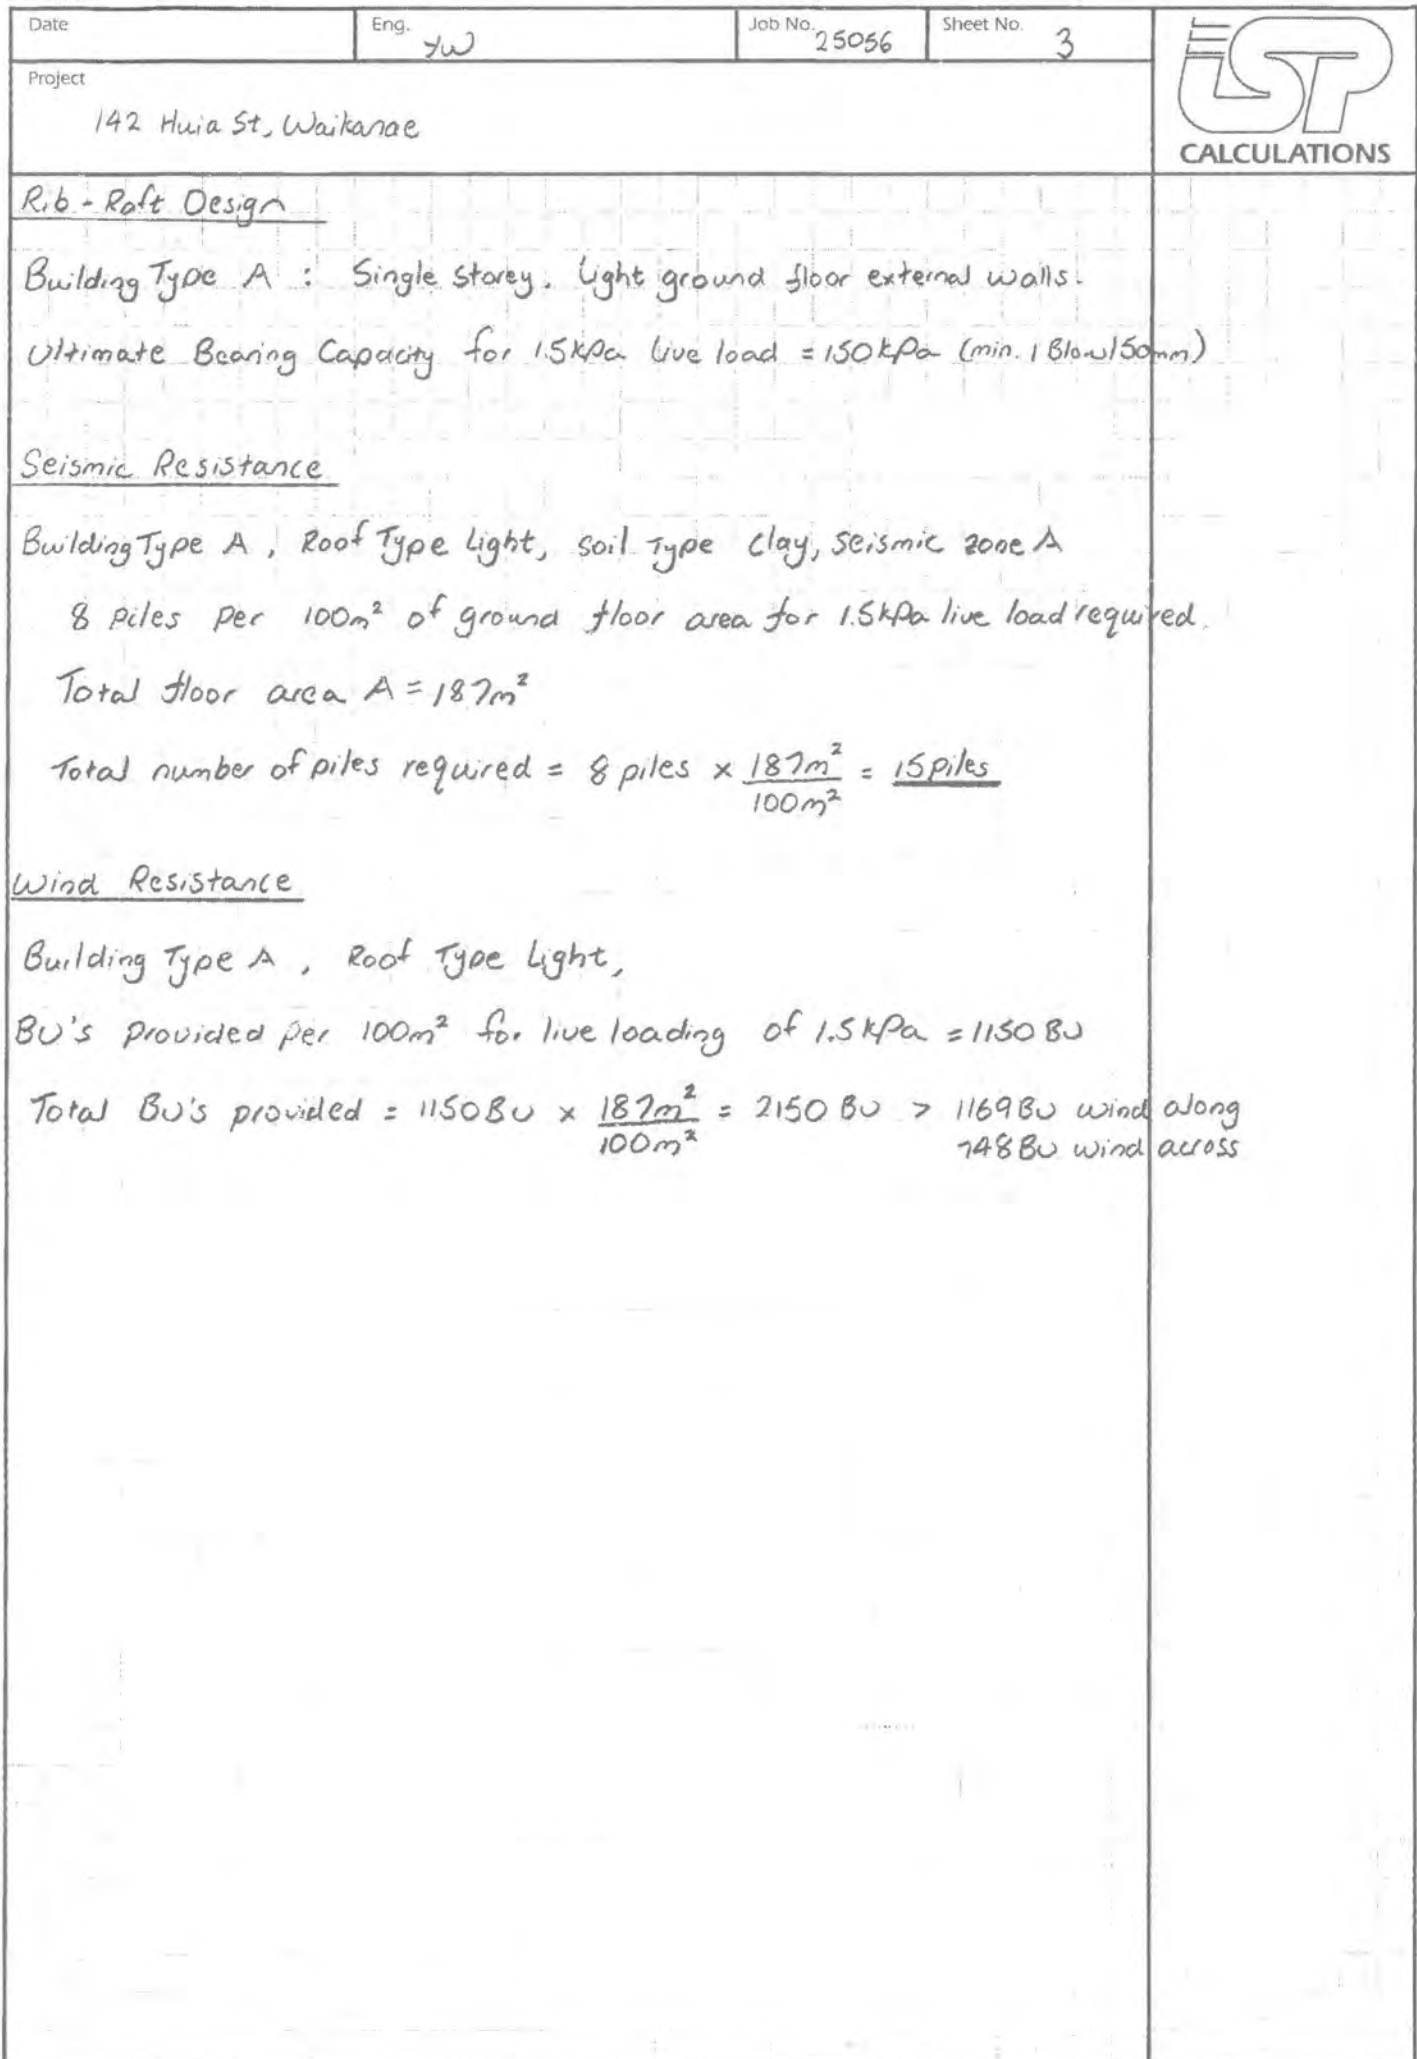 Date
Eng. YW
Job No. 25056
Sheet No. 3
Project
142 Huia St, Waikanae
ISP
CALCULATIONS
Rib - Raft Design
Building Type A : Single Storey. Light ground floor external walls.
Ultimate Bearing Capacity for 1.5kPa live load = 150kPa (min. 1 Blow/50mm)
Seismic Resistance
Building Type A, Roof Type Light, Soil Type Clay, Seismic zone A
8 piles per 100m² of ground floor area for 1.5kPa live load required.
Total floor area A = 187m²
Total number of piles required = 8 piles × 187m²/100m² = 15 piles
Wind Resistance
Building Type A, Roof Type Light,
BU's provided per 100m² for live loading of 1.5kPa = 1150 BU
Total BU's provided = 1150BU × 187m²/100m² = 2150 BU > 1169BU wind along
748BU wind across